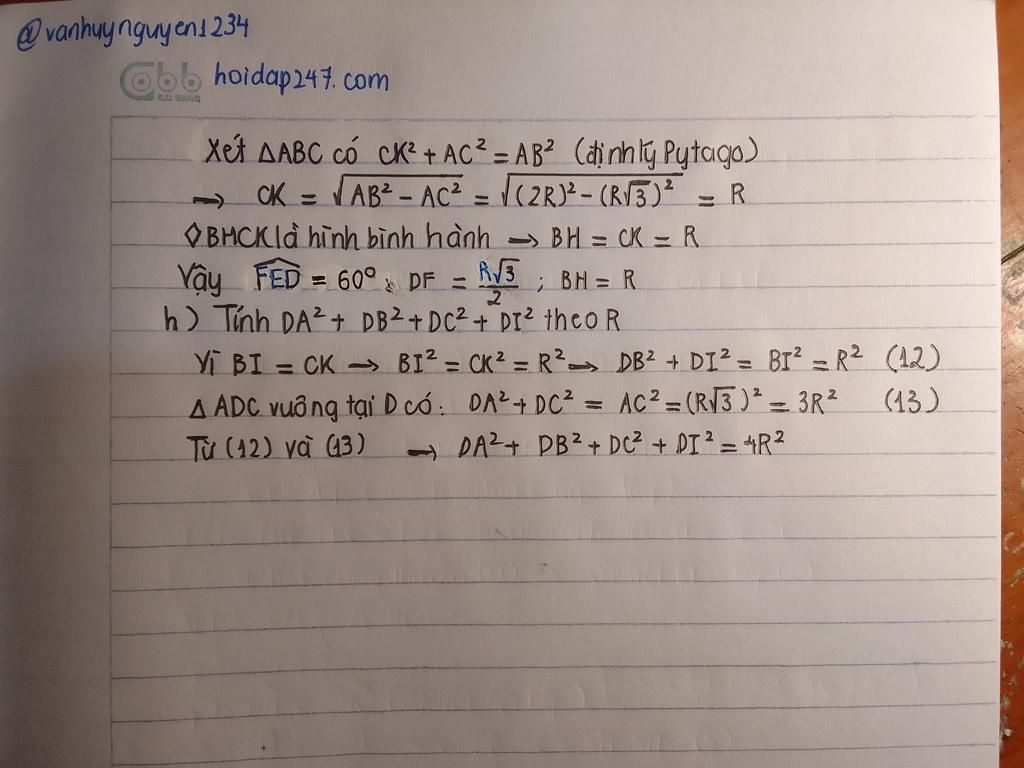 @vanhuynguyen1234
hoidap247.com
Xét ΔABC có CK² + AC² = AB² (định lý Pytago)
→ CK = √(AB² − AC²) = √((2R)² − (R√3)²) = R
◊BHCK là hình bình hành → BH = CK = R
Vậy FED = 60°; DF = R√3/2 ; BH = R
h) Tính DA² + DB² + DC² + DI² theo R
Vì BI = CK → BI² = CK² = R² → DB² + DI² = BI² = R² (12)
Δ ADC vuông tại D có: DA² + DC² = AC² = (R√3)² = 3R² (13)
Từ (12) và (13) → DA² + DB² + DC² + DI² = 4R²